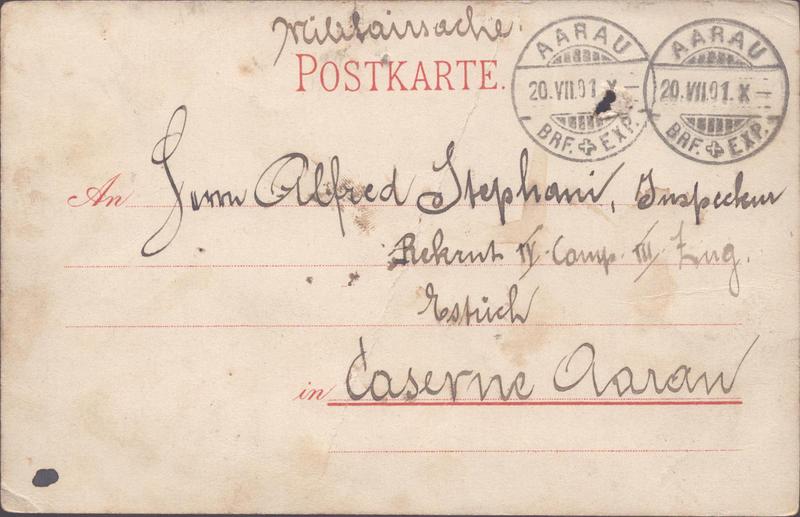 Militairsache.
POSTKARTE.
AARAU
20.VII.01.X—
BRF. EXP.
AARAU
20.VII.01.X—
BRF. EXP.
An Herrn Alfred Stephani, Inspecteur
Rekrut IV. Comp. III Zug.
in Caserne Aarau